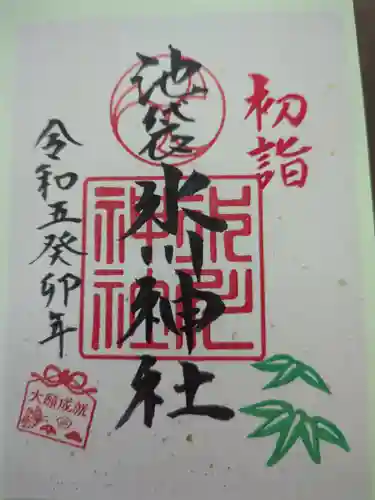 初詣
池袋氷川神社
令和五癸卯年
大願成就